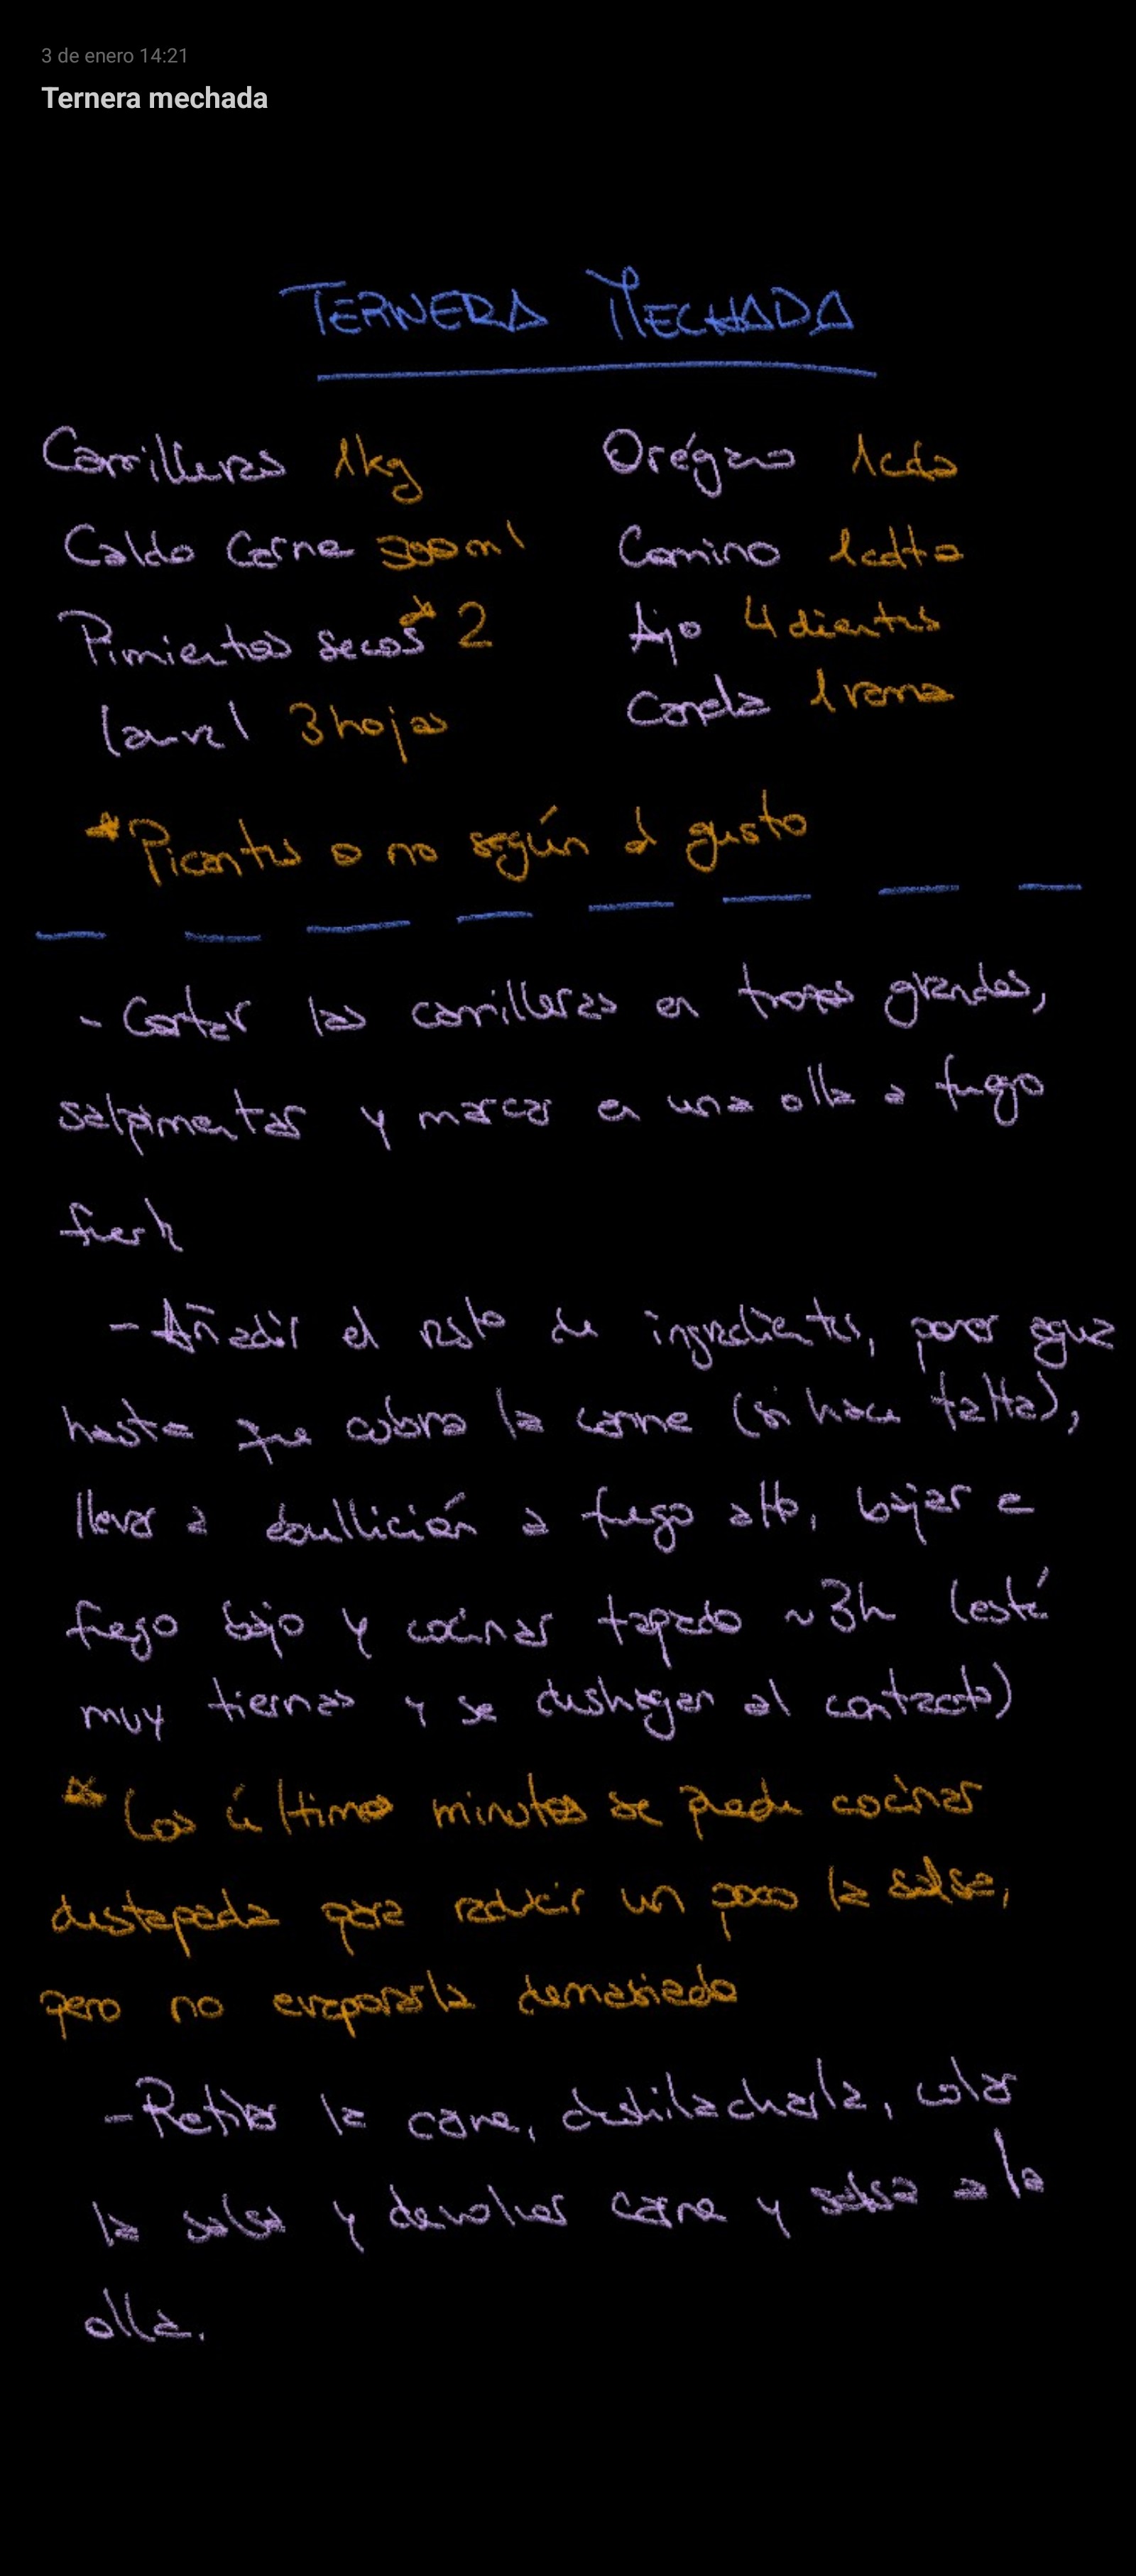 3 de enero 14:21
Ternera mechada
TERNERA MECHADA
Carrilleras 1kg
Orégano 1cda
Caldo Carne 300ml
Comino 1cdta
Pimientos secos* 2
Ajo 4 dientes
Laurel 3 hojas
Canela 1 rama
*Picantes o no según el gusto
- Cortar las carrilleras en trozos grandes,
salpimentar y marcar en una olla a fuego
fuerte
- Añadir el resto de ingredientes, poner agua
hasta que cubra la carne (si hace falta),
llevar a ebullición a fuego alto, bajar a
fuego bajo y cocinar tapado ~3h (esté
muy tiernas y se deshagan al contacto)
* Los últimos minutos se puede cocinar
destapada para reducir un poco la salsa,
pero no evaporarla demasiado
- Retirar la carne, deshilacharla, colar
la salsa y devolver carne y salsa a la
olla.